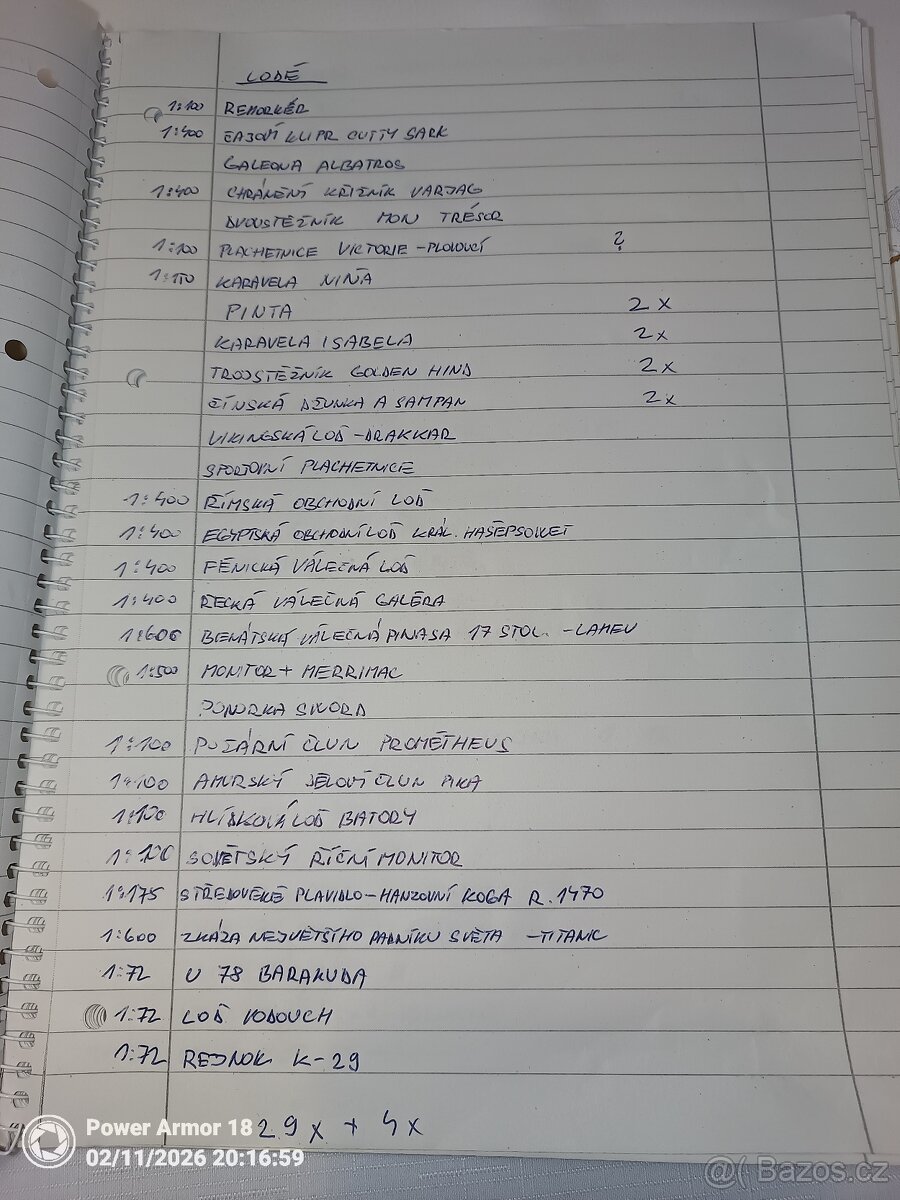 LODĚ
1:100 REMORKÉR
1:400 ČAJOVÝ KLIPR CUTTY SARK
GALEONA ALBATROS
1:400 CHRÁNĚNÝ KŘIŽNÍK VARJAG
DVOUSTĚŽNÍK MON TRÉSOR
1:100 PLACHETNICE VICTORIE - PLOVOUCÍ ?
KARAVELA NIŇA
PINTA 2x
KARAVELA ISABELA 2x
TROJSTĚŽNÍK GOLDEN HIND 2x
ČÍNSKÁ DŽUNKA A SAMPAN 2x
VIKINGSKÁ LOĎ - DRAKKAR
SPORTOVNÍ PLACHETNICE
1:400 ŘÍMSKÁ OBCHODNÍ LOĎ
1:400 EGYPTSKÁ OBCHODNÍ LOĎ KRÁL. HAŠEPSOVET
1:400 FÉNICKÁ VÁLEČNÁ LOĎ
1:400 ŘECKÁ VÁLEČNÁ GALÉRA
1:600 BENÁTSKÁ VÁLEČNÁ PINASA 17 STOL.
1:500 MONITOR + MERRIMAC
PONORKA SWORD
1:100 POŽÁRNÍ ČLUN PROMÉTHEUS
1:100 AMURSKÝ DĚLOVÝ ČLUN PIKA
1:100 HLÍDKOVÁ LOĎ BATORY
1:100 SOVĚTSKÝ ŘÍČNÍ MONITOR
1:175 STŘEDOVĚKÉ PLAVIDLO - HANZOVNÍ KOGA R. 1470
1:600 ZKÁZA NEJVĚTŠÍHO PARNÍKU SVĚTA - TITANIC
1:72 U 78 BARAKUDA
1:72 LOĎ VODOUCH
1:72 REJNOK K-29
29x + 4x
Power Armor 18
02/11/2026 20:16:59
@( Bazos.cz